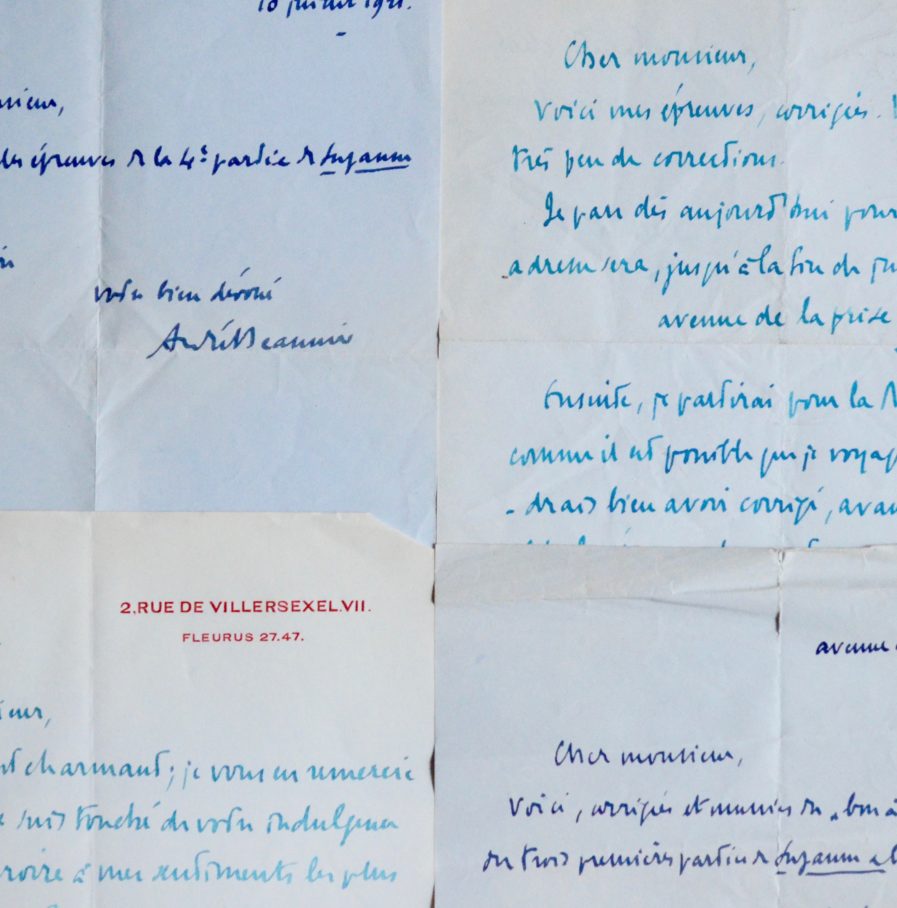 10 juillet 1921.
les épreuves de la 4e partie de Suzanne
votre bien dévoué
André Beaunier
Cher monsieur,
Voici mes épreuves, corrigées.
très peu de corrections.
Je pars dès aujourd'hui pour
adresse sera, jusqu'à la fin de
avenue de la prise
Ensuite, je partirai pour la
comme il est possible que je
-drais bien avoir corrigé,
2, RUE DE VILLERSEXEL. VII.
FLEURUS 27.47.
charmant; je vous en remercie
suis touché de votre indulgence
croire à mes sentiments les plus
avenue
Cher monsieur,
Voici, corrigées et munies du "bon à
les trois premières parties de Suzanne